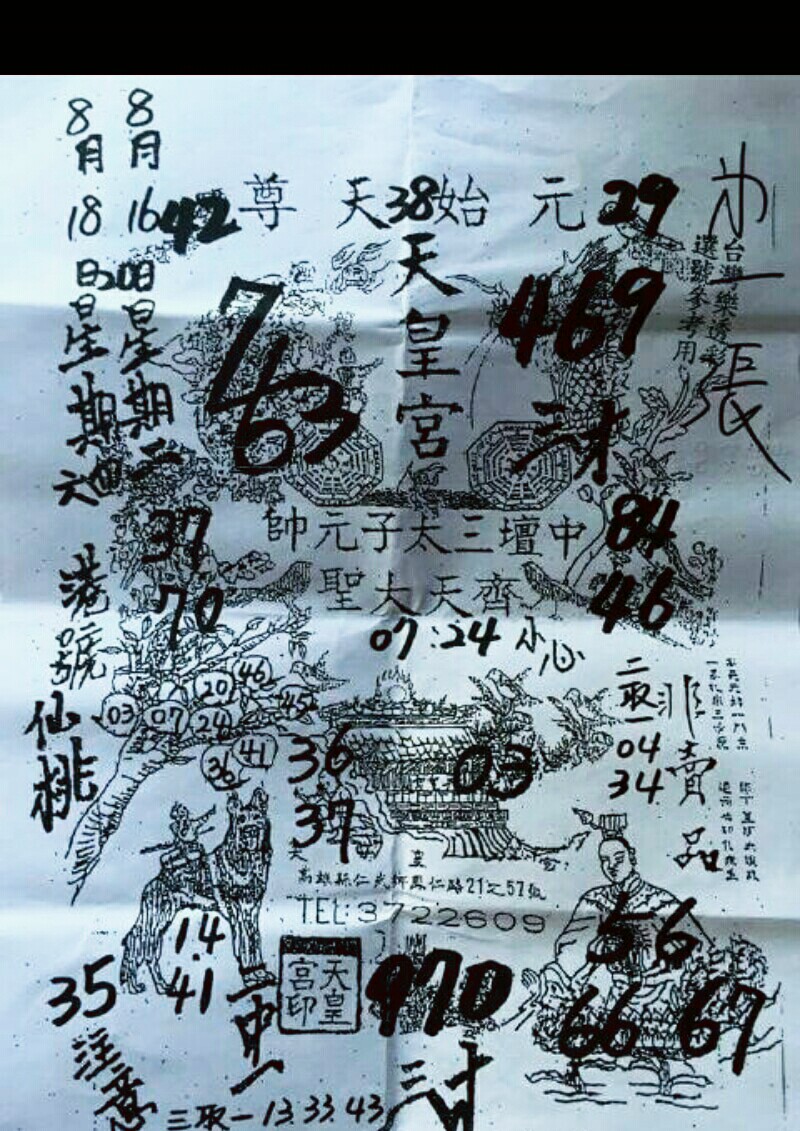 8月16日星期二
8月18日星期四
20日六
港號
仙桃
42
尊天38始元
29
天皇宮
台灣樂透彩
選號參考用
張
7
63
469
三才
37
70
帥元子太三壇中
84
聖大天齊
46
07:24 小心
二取一
04
34
非賣品
03
07
20
24
46
45
36
41
36
37
03
天皇宮
21之57號
TEL:3722609
14
41
二中一
天皇
宮印
970
三才
56
66
67
35
注意
三取一13.33.43